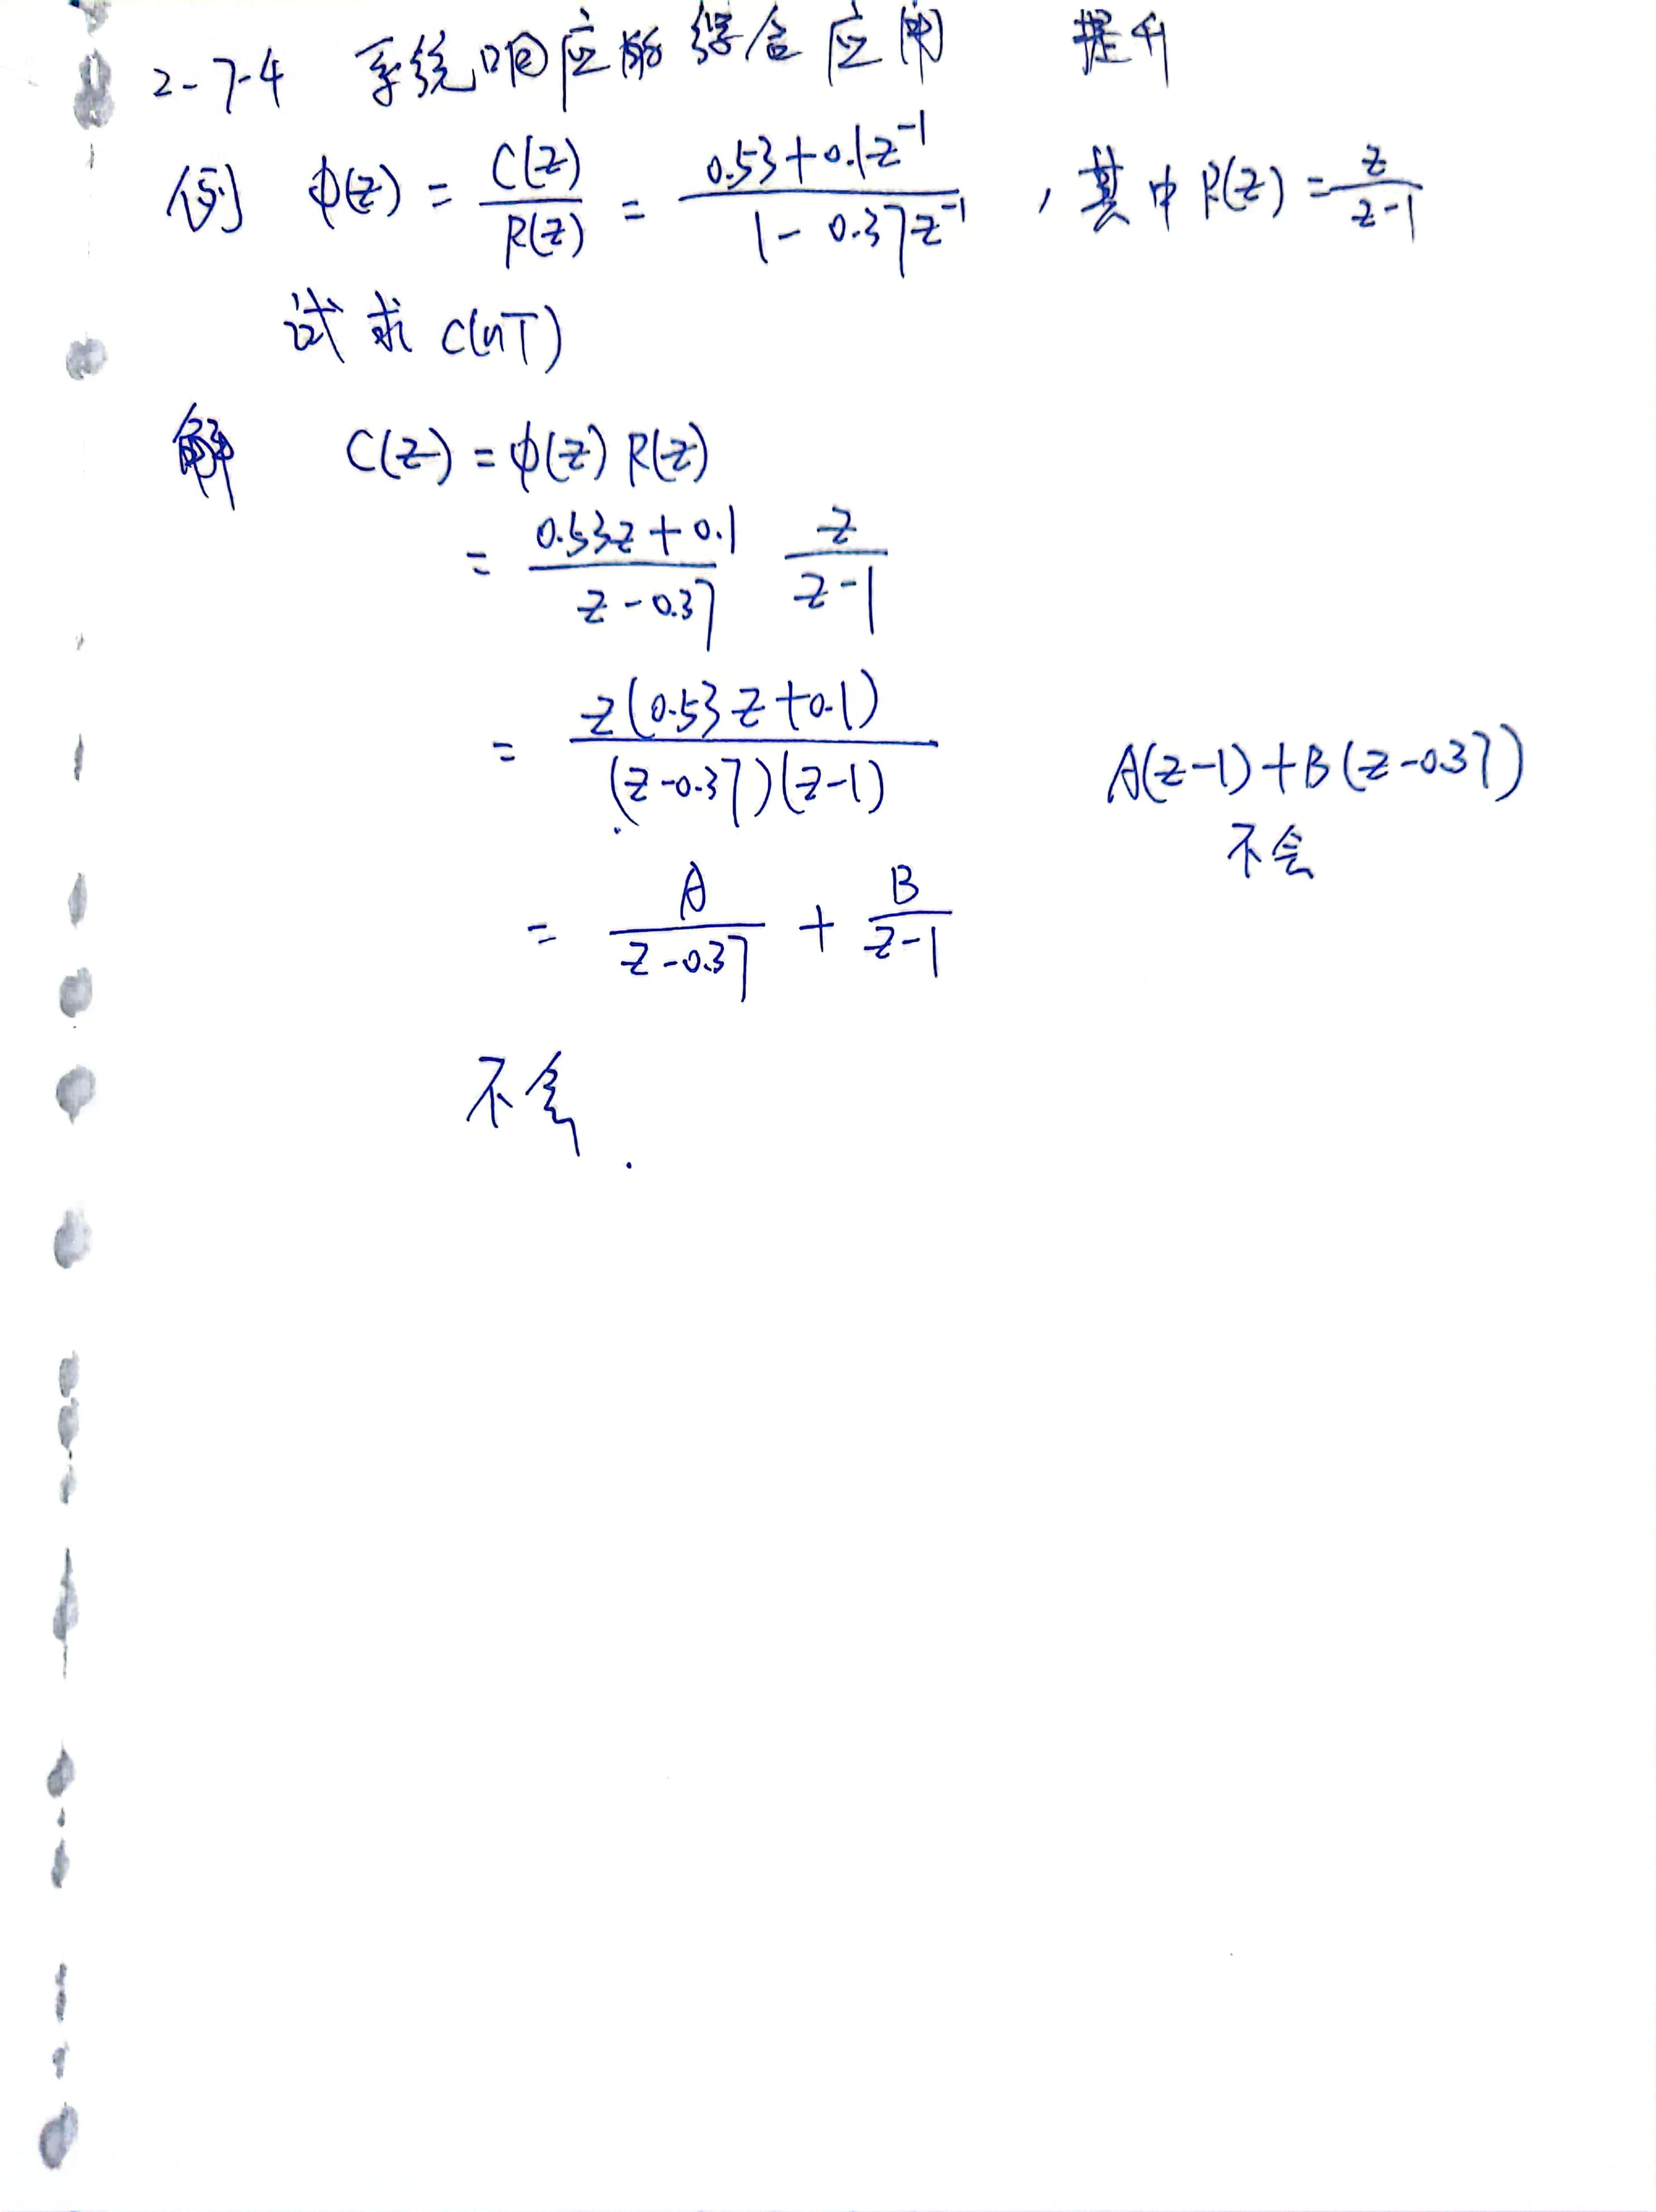 2-7-4 系统响应的综合应用 提升
例 Φ(z) = C(z)/R(z) = (0.53+0.1z⁻¹)/(1-0.37z⁻¹) , 其中 R(z) = z/(z-1)
试求 C(nT)
解 C(z) = Φ(z) R(z)
= (0.53z+0.1)/(z-0.37) z/(z-1)
= z(0.53z+0.1)/((z-0.37)(z-1))
A(z-1)+B(z-0.37)
不会
= A/(z-0.37) + B/(z-1)
不会.